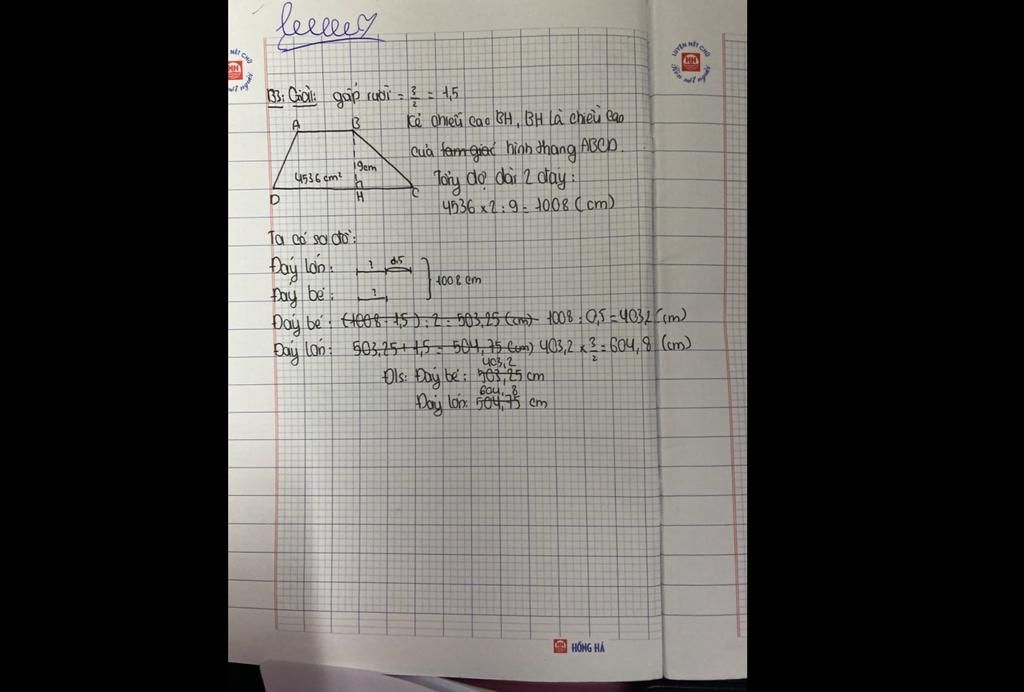 B3: Giải: gấp rưỡi = 3/2 = 1,5
A B
Kẻ chiều cao BH, BH là chiều cao
của tam giác hình thang ABCD.
9cm
4536 cm²
D H C
Tổng độ dài 2 đáy:
4536 × 2 : 9 = 1008 (cm)
Ta có sơ đồ:
Đáy lớn: ? 0,5
1008 cm
Đáy bé: ?
Đáy bé: (1008 - 1,5) : 2 = 503,25 (cm) 1008 : 0,5 = 403,2 (cm)
Đáy lớn: 503,25 + 1,5 = 504,75 (cm) 403,2 × 3/2 = 604,8 (cm)
403,2
Đ/s: Đáy bé: 503,25 cm
604,8
Đáy lớn: 504,75 cm
LUYỆN NÉT CHỮ
HH
RÈN NẾT NGƯỜI
HỒNG HÀ